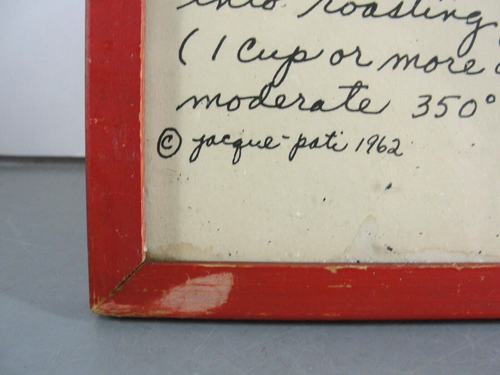 into roasting
( 1 cup or more
moderate 350°
© jacque-pati 1962